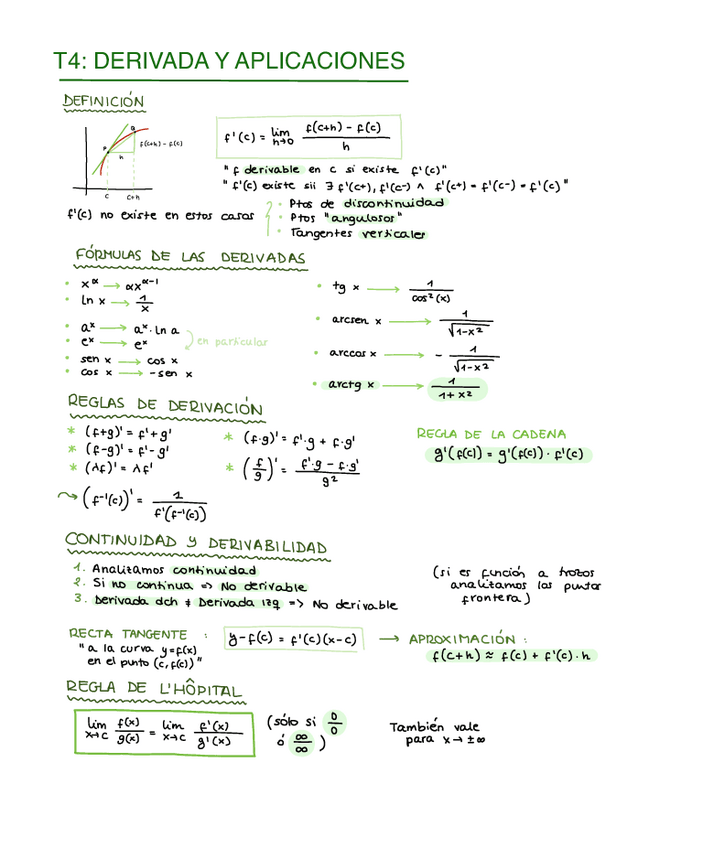 T4: DERIVADA Y APLICACIONES
DEFINICIÓN
P
Q
h
f(c+h) - f(c)
c
c+h
f'(c) = lim h→0 (f(c+h) - f(c)) / h
"f derivable en c si existe f'(c)"
"f'(c) existe sii ∃ f'(c+), f'(c-) ∧ f'(c+) = f'(c-) = f'(c)"
f'(c) no existe en estos casos
· Ptos de discontinuidad
· Ptos "angulosos"
· Tangentes verticales
FÓRMULAS DE LAS DERIVADAS
• x^α → αx^(α-1)
• ln x → 1/x
• a^x → a^x · ln a
• e^x → e^x
en particular
• sen x → cos x
• cos x → -sen x
• tg x → 1/cos²(x)
• arcsen x → 1/√(1-x²)
• arccos x → - 1/√(1-x²)
• arctg x → 1/(1+x²)
REGLAS DE DERIVACIÓN
* (f+g)' = f'+g'
* (f-g)' = f'-g'
* (λf)' = λf'
* (f·g)' = f'·g + f·g'
* (f/g)' = (f'·g - f·g') / g²
(f⁻¹(c))' = 1 / f'(f⁻¹(c))
REGLA DE LA CADENA
g'(f(c)) = g'(f(c)) · f'(c)
CONTINUIDAD Y DERIVABILIDAD
1. Analizamos continuidad
2. Si no continua => No derivable
3. Derivada dch ≠ Derivada izq => No derivable
(si es función a trozos
analizamos los puntos
frontera)
RECTA TANGENTE :
"a la curva y=f(x)
en el punto (c, f(c))"
y-f(c) = f'(c)(x-c)
→ APROXIMACIÓN :
f(c+h) ≈ f(c) + f'(c)·h
REGLA DE L'HÔPITAL
lim x→c f(x)/g(x) = lim x→c f'(x)/g'(x)
(sólo si 0/0
ó ∞/∞ )
También vale
para x → ±∞